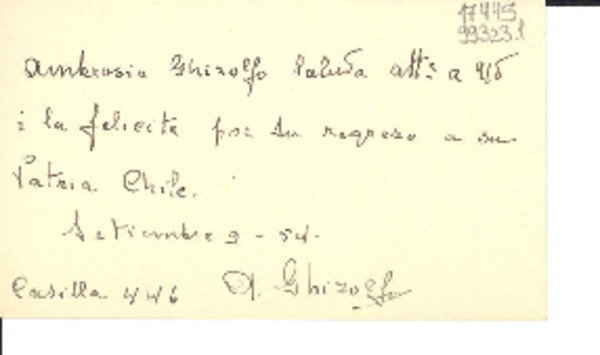 17445
99323.1
Ambrosio Ghizolfo Saluda att.e a Ud
i la felicita por su regreso a su
Patria Chile.
Setiembre 2 - 54.
Casilla 446 A. Ghizolfo